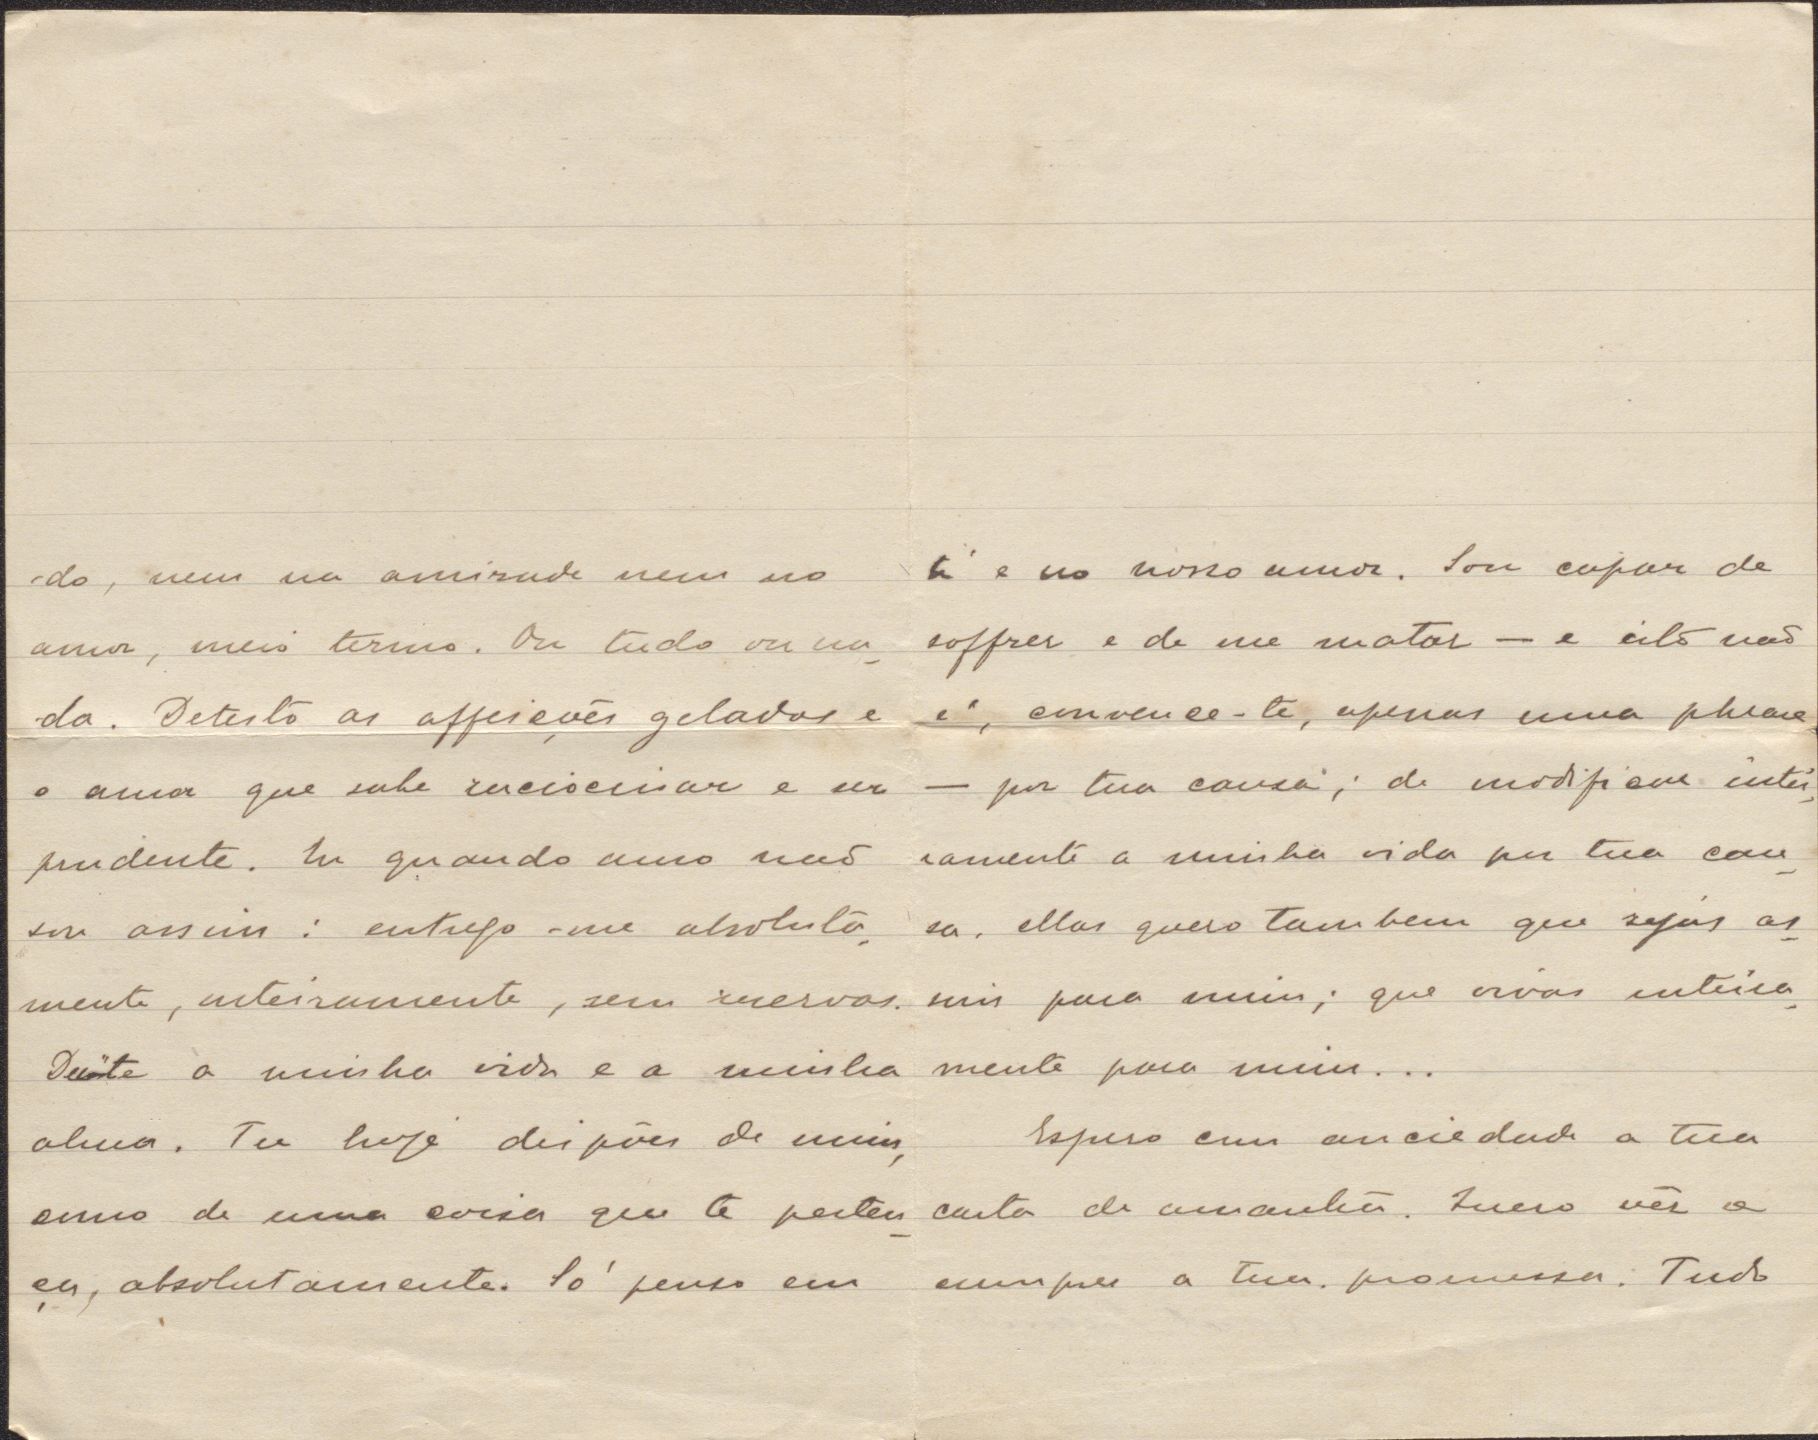 -do, nem na amizade nem no
amor, meio termo. Ou tudo ou na-
-da. Detesto as affeições geladas e
o amor que sabe raciocinar e ser
prudente. Eu quando amo não
sou assim: entrego-me absoluta-
mente, inteiramente, sem reservas.
Dei-te a minha vida e a minha
alma. Tu hoje dispões de mim,
como de uma coisa que te perten-
ça, absolutamente. Só penso em
ti e no nosso amor. Sou capaz de
soffrer e de me matar — e isto não
é, convence-te, apenas uma phrase
— por tua causa; de modificar intei-
ramente a minha vida por tua cau-
sa. Mas quero tambem que sejas as-
sim para mim; que vivas inteira-
mente para mim...
Espero com anciedade a tua
carta de amanhã. Quero vêr se
cumpres a tua promessa. Tudo